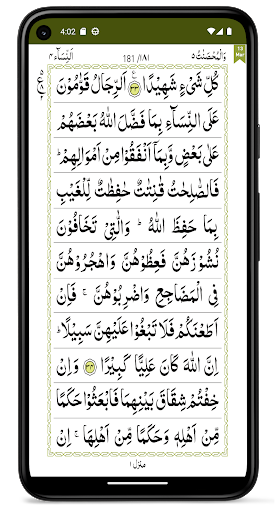 4:02
اَلنِّسَآء ۴ 181/۱۸۱ وَالْمُحْصَنٰتُ ۵
13
Mar
كُلِّ شَیْءٍ شَهِیْدًا ۟﴿۳۳﴾ اَلرِّجَالُ قَوّٰمُوْنَ
عَلَی النِّسَآءِ بِمَا فَضَّلَ اللّٰهُ بَعْضَهُمْ
عَلٰی بَعْضٍ وَّبِمَاۤ اَنْفَقُوْا مِنْ اَمْوَالِهِمْ ؕ
فَالصّٰلِحٰتُ قٰنِتٰتٌ حٰفِظٰتٌ لِّلْغَیْبِ
بِمَا حَفِظَ اللّٰهُ ؕ وَالّٰتِیْ تَخَافُوْنَ
نُشُوْزَهُنَّ فَعِظُوْهُنَّ وَاهْجُرُوْهُنَّ
فِی الْمَضَاجِعِ وَاضْرِبُوْهُنَّ ۚ فَاِنْ
اَطَعْنَكُمْ فَلَا تَبْغُوْا عَلَیْهِنَّ سَبِیْلًا ؕ
اِنَّ اللّٰهَ كَانَ عَلِیًّا كَبِیْرًا ﴿۳۴﴾ وَاِنْ
خِفْتُمْ شِقَاقَ بَیْنِهِمَا فَابْعَثُوْا حَكَمًا
مِّنْ اَهْلِهٖ وَحَكَمًا مِّنْ اَهْلِهَا ۚ اِنْ
منزل ۱